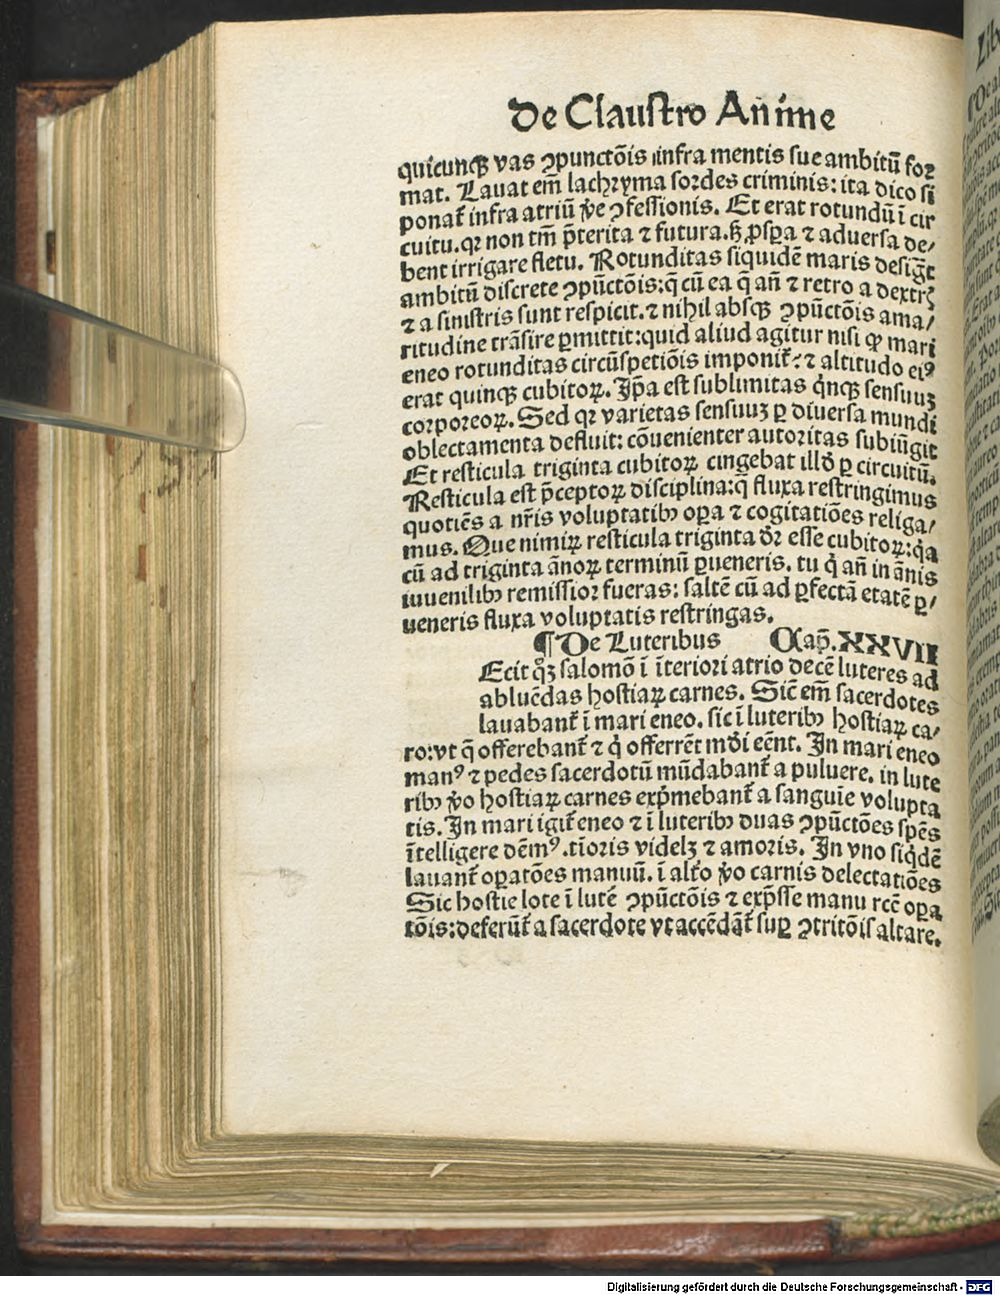 De Clauſtro Anime
quicunqꝫ vas ꝯpunctōis infra mentis ſue ambitū foꝛ
mat. Lavat em̄ lachꝛyma ſoꝛdes criminis: ita dico ſi
ponat᷑ infra atriū ꝟe ꝯfeſſionis. Et erat rotundū ī cir
cuitu. qꝛ non tm̄ p̄terita ⁊ futura. ſꝫ ꝓſꝑa ⁊ aduerſa de/
bent irrigare fletu. Rotunditas ſiquidē maris deſigt
ambitū diſcrete ꝯpūctōis: q̄ cū ea q̄ an̄ ⁊ retro a dextr
⁊ a ſiniſtris ſunt reſpicit. ⁊ nihil abſqꝫ ꝯpūctōis ama/
ritudine trāſire ꝑmittit: quid aliud agitur niſi ꝙ mari
eneo rotunditas circūſpetiōis imponit᷑: ⁊ altitudo eiꝰ
erat quinqꝫ cubitoꝝ. Ip̄a eſt ſublimitas qͥnqꝫ ſenſuuꝫ
coꝛpoꝛeoꝝ. Sed qꝛ varietas ſenſuuꝫ ꝑ diuerſa mundi
oblectamenta defluit: cōuenienter autoꝛitas ſubiūgit
Et reſticula triginta cubitoꝝ cingebat illd̓ ꝑ circuitū.
Reſticula eſt p̄ceptoꝝ diſciplina: q̄ fluxa reſtringimus
quotiēs a nr̄is voluptatibꝫ oꝑa ⁊ cogitatiōes religa/
mus. Que nimiꝝ reſticula triginta dꝛ̄ eſſe cubitoꝝ: qͥa
cū ad triginta ānoꝝ terminū ꝑueneris. tu qͥ an̄ in ānis
iuuenilibꝫ remiſſioꝛ fueras: ſaltē cū ad ꝑfectā etatē ꝑ/
ueneris fluxa voluptatis reſtringas.
¶ De Luteribus Cap̄. XXVII
Ecit qꝫ ſalomō ī īteriori atrio decē luteres ad
abluēdas hoſtiaꝝ carnes. Sic̄ em̄ ſacerdotes
lauabant᷑ ī mari eneo. ſic ī luteribꝫ hoſtiaꝝ ca/
ro: vt q̄ offerebant᷑ ⁊ qͥ offerrēt mūdi eēnt. In mari eneo
manꝰ ⁊ pedes ſacerdotū mūdabant᷑ a puluere. in lute
ribꝫ ꝟo hoſtiaꝝ carnes exp̄mebant᷑ a ſanguīe volupta
tis. In mari igit᷑ eneo ⁊ ī luteribꝫ duas ꝯpūctōes ſpēs
ītelligere dēmꝰ. tīoris videlꝫ ⁊ amoris. In vno ſiqͥdē
lauant᷑ oꝑatōes manuū. ī alt᷑o ꝟo carnis delectatiōes
Sic hoſtie lote ī lutē ꝯpūctōis ⁊ exp̄ſſe manu rcē oꝑa
tōis: deferūt᷑ a ſacerdote vt accēdāt᷑ ſuꝑ ꝯtritōiſ altare.
Digitalisierung gefördert durch die Deutsche Forschungsgemeinschaft - DFG